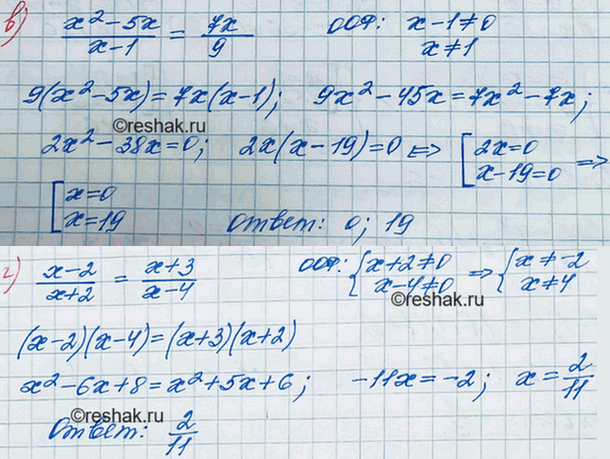 в) (x²-5x)/(x-1) = 7x/9 ООФ: x-1≠0
x≠1
9(x²-5x)=7x(x-1); 9x²-45x=7x²-7x;
©reshak.ru
2x²-38x=0; 2x(x-19)=0 ⇔ [2x=0
x-19=0 ⇒
[x=0
x=19 Ответ: 0; 19
г) (x-2)/(x+2) = (x+3)/(x-4) ООФ: {x+2≠0
x-4≠0 ⇒ {x≠-2
x≠4
©reshak.ru
(x-2)(x-4)=(x+3)(x+2)
x²-6x+8=x²+5x+6; -11x=-2; x=2/11
©reshak.ru
Ответ: 2/11